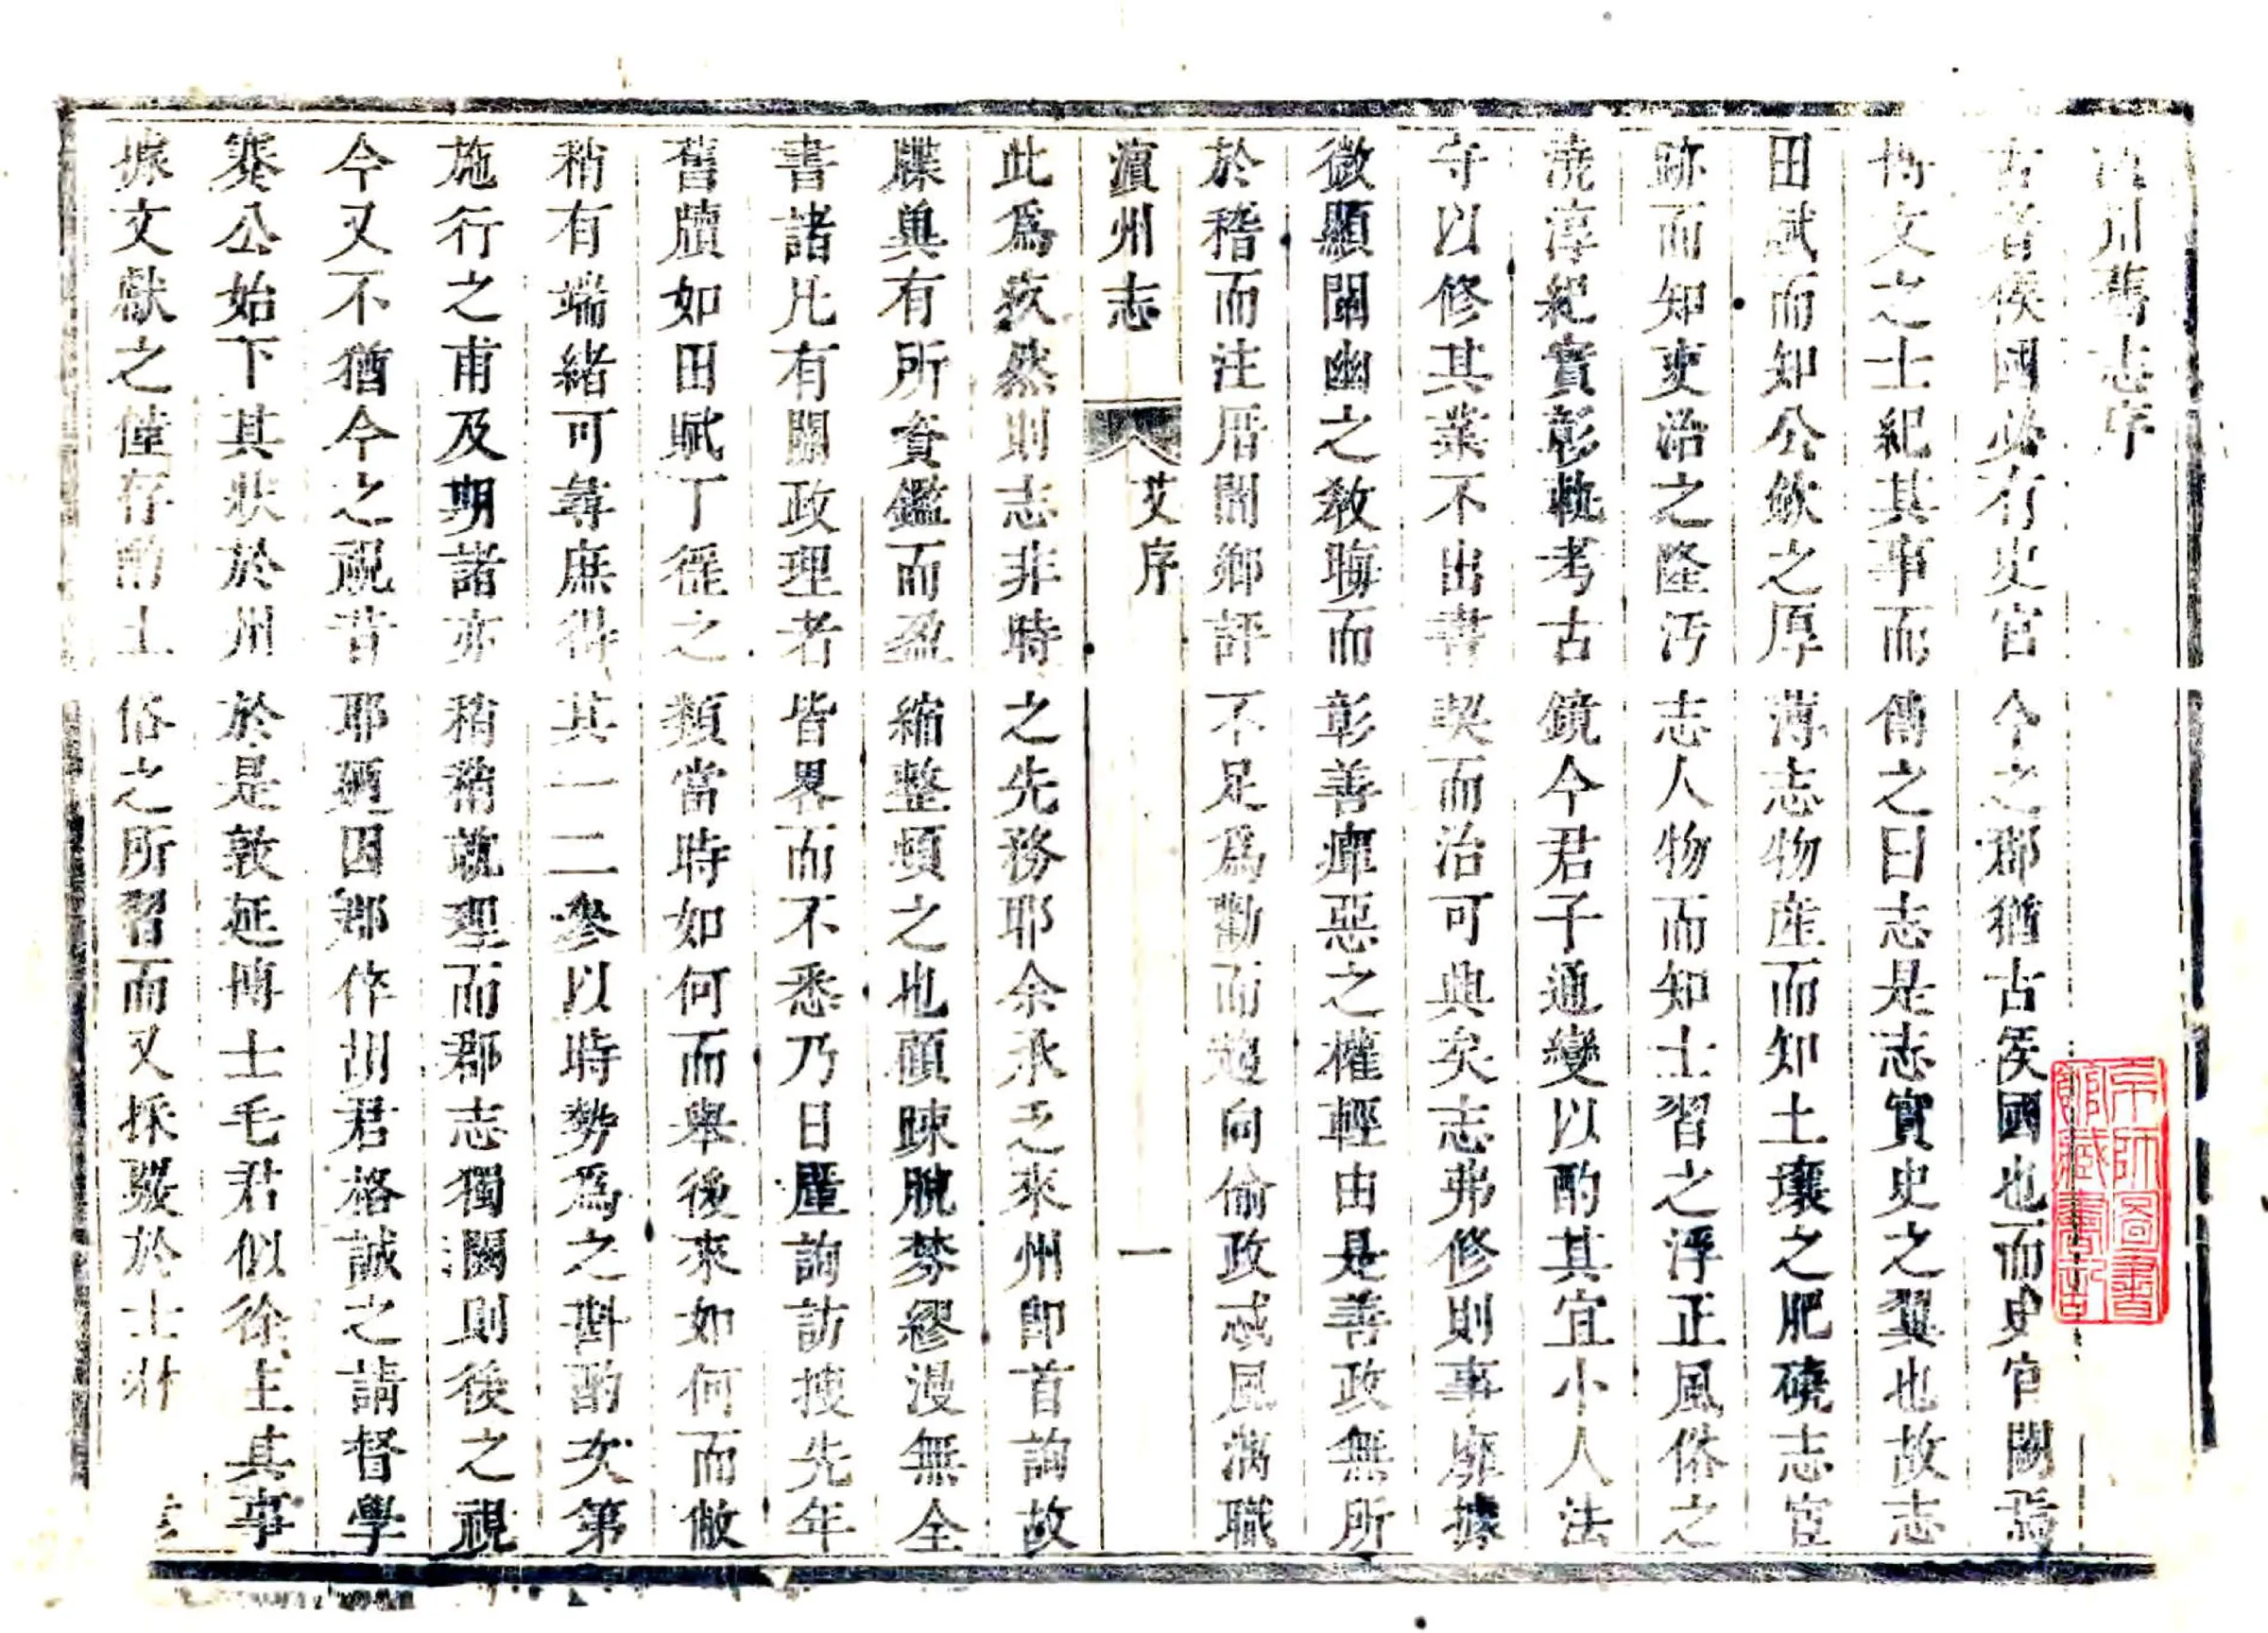 濵州舊志序
古者侯國必有史官今之郡猶古侯國也而史官闕焉
博文之士紀其事而傳之曰志是志實史之翼也故志
田賦而知公歛之厚薄志物産而知土壤之肥磽志宦
跡而知吏治之隆汚志人物而知士習之浮正風俗之
澆淳紀實彰軌考古鏡今君子通變以酌其宜小人法
守以修其業不出書契而治可典矣志弗修則事靡據
微顯闡幽之敎晦而彰善癉惡之權輕由是善政無所
於稽而注厝閭鄉評不足爲勸而趨向偷政忒風漓職
濵州志
艾序
一
此爲疚然則志非時之先務耶余承乏來州卽首詢故
牒奥有所資鑑而盈縮整頓之也頋踈脫棼繆漫無全
書諸凡有關政理者皆畧而不悉乃日延詢訪搜先年
舊牘如田賦丁徭之類當時如何而舉後來如何而倣
稍有端緒可尋庶得其一二參以時勢爲之斟酌次第
施行之甫及期諸亦稍稍就理而郡志獨闕則後之視
今又不猶今之視昔耶廼因郡作胡君格誠之請督學
蹇公始下其狀於州於是敦延博士毛君似徐主其事
據文獻之僅存酌土俗之所習而又採掇於士